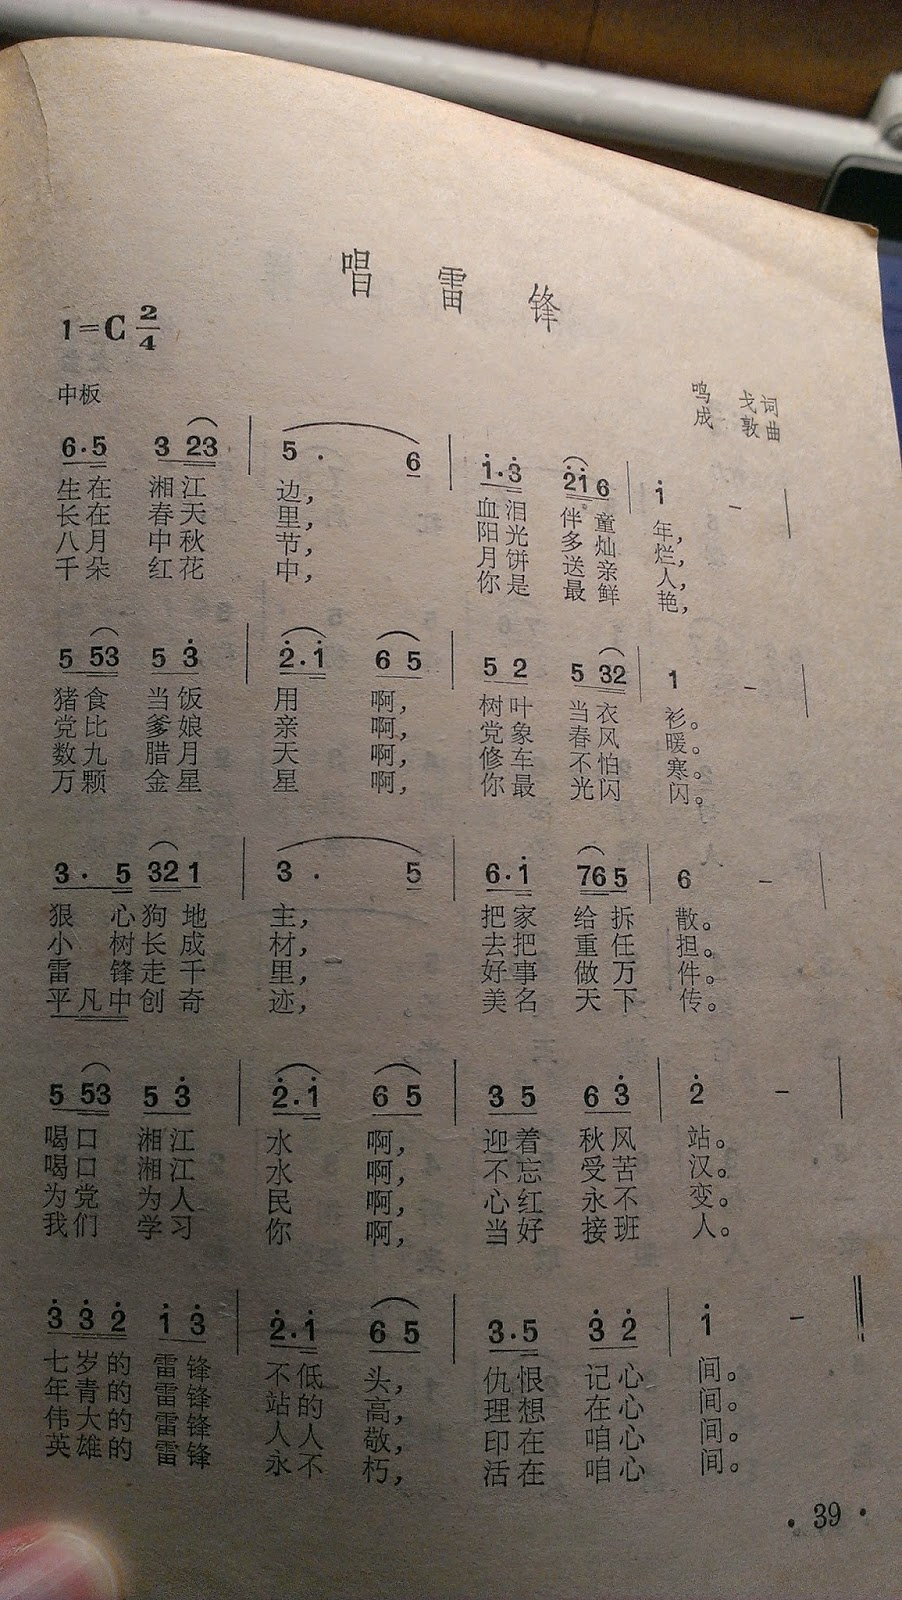 唱雷锋
1=C 2/4
中板
鸣戈词
成敦曲
6·5 3 23 | 5· 6 | i·3̇ 2̇i6 | i - |
生在 湘江 边, 血泪 伴童 年,
长在 春天 里, 阳光 多灿 烂,
八月 中秋 节, 月饼 送亲 人,
千朵 红花 中, 你是 最鲜 艳,
5 53 5 3̇ | 2̇·i 6 5 | 5 2 5 32 | 1 - |
猪食 当饭 用 啊, 树叶 当衣 衫。
党比 爹娘 亲 啊, 党象 春风 暖。
数九 腊月 天 啊, 修车 不怕 寒。
万颗 金星 星 啊, 你最 光闪 闪。
3· 5 32 1 | 3· 5 | 6·i 76 5 | 6 - |
狠 心狗 地 主, 把家 给拆 散。
小 树长 成 材, 去把 重任 担。
雷 锋走 千 里, 好事 做万 件。
平凡中创 奇 迹, 美名 天下 传。
5 53 5 3̇ | 2̇·i 6 5 | 3 5 6 3̇ | 2̇ - |
喝口 湘江 水 啊, 迎着 秋风 站。
喝口 湘江 水 啊, 不忘 受苦 汉。
为党 为人 民 啊, 心红 永不 变。
我们 学习 你 啊, 当好 接班 人。
3̇ 3̇ 2̇ i 3̇ | 2̇·i 6 5 | 3·5 3̇ 2̇ | i - ‖
七岁的 雷锋 不低 头, 仇恨 记心 间。
年青的 雷锋 站的 高, 理想 在心 间。
伟大的 雷锋 人人 敬, 印在 咱心 间。
英雄的 雷锋 永不 朽, 活在 咱心 间。
·39·